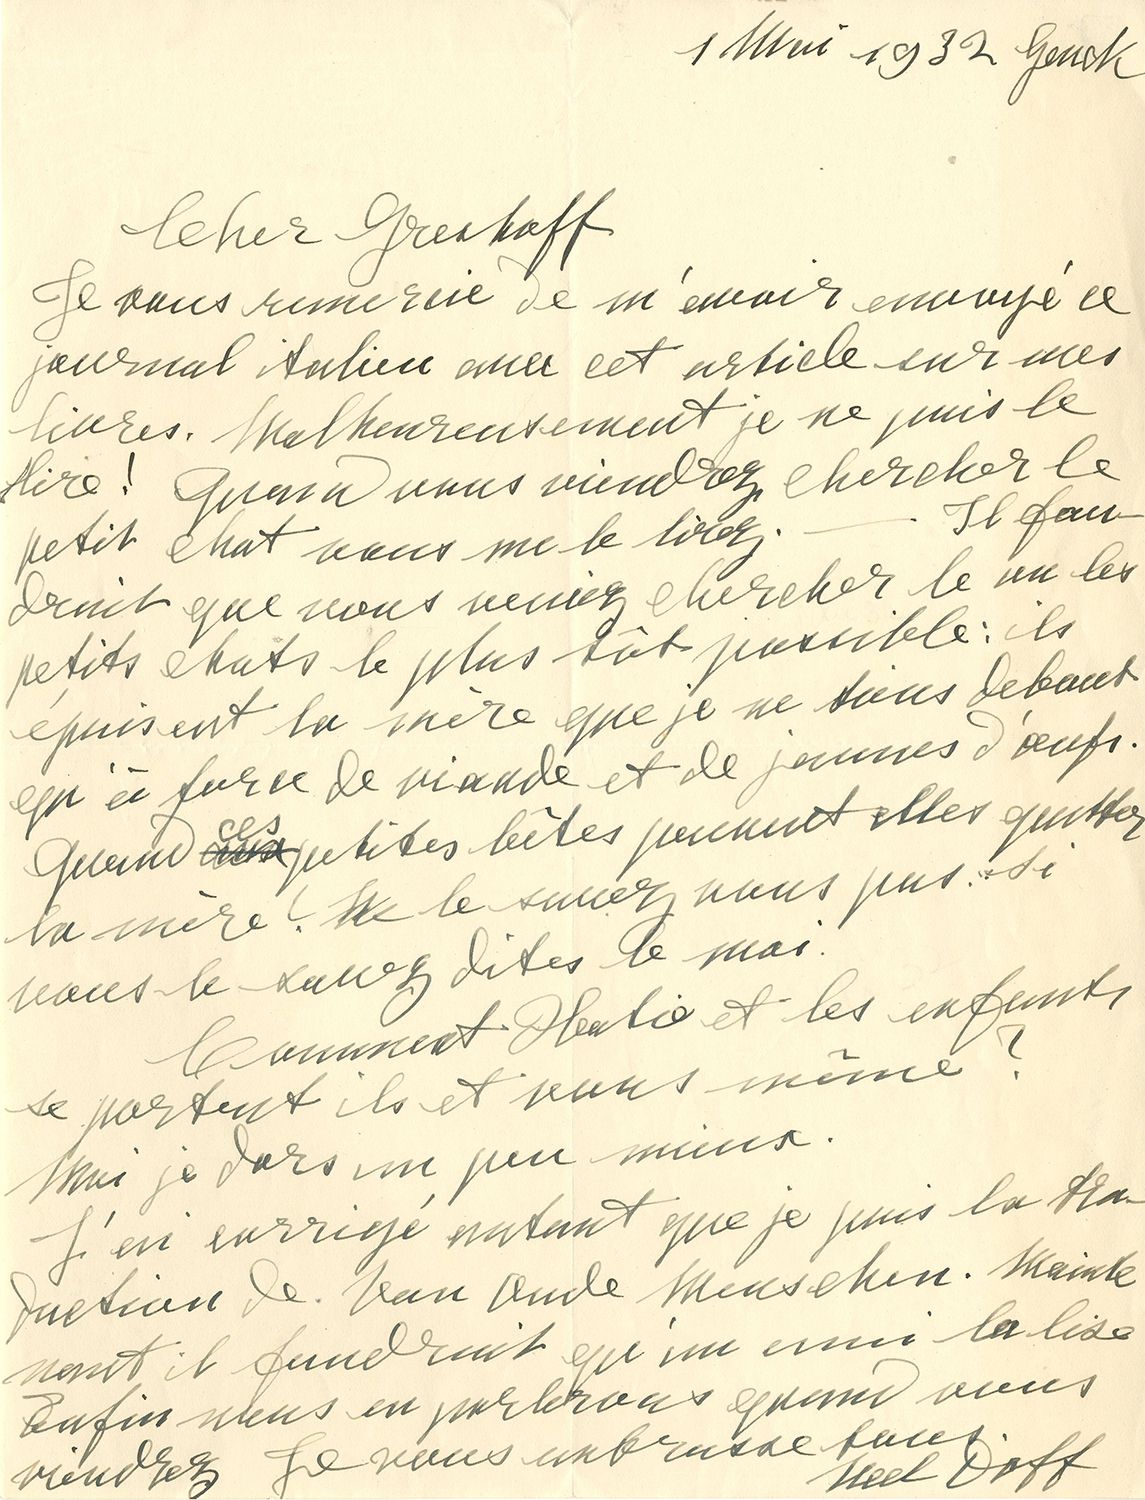 1 Mai 1932 Genck
Cher Greshoff
Je vous remercie de m'avoir envoyé ce
journal italien avec cet article sur mes
livres. Malheureusement je ne puis le
lire! Quand vous viendrez chercher le
petit chat vous me le lirez. — Il fau-
drait que vous veniez chercher le ou les
petits chats le plus tôt possible: ils
épuisent la mère que je ne tiens debout
qu'à force de viande et de jaunes d'œufs.
Quand ces petites bêtes peuvent elles quitter
la mère? Ne le savez vous pas. Si
vous le savez dites le moi.
Comment Aatie et les enfants
se portent ils et vous même?
Moi je dors un peu mieux.
J'ai corrigé autant que je puis la tra-
duction de Van Oude Menschen. Mainte
nant il faudrait qu'un ami la lise
Enfin nous en parlerons quand vous
viendrez Je vous embrasse tous.
Neel Doff